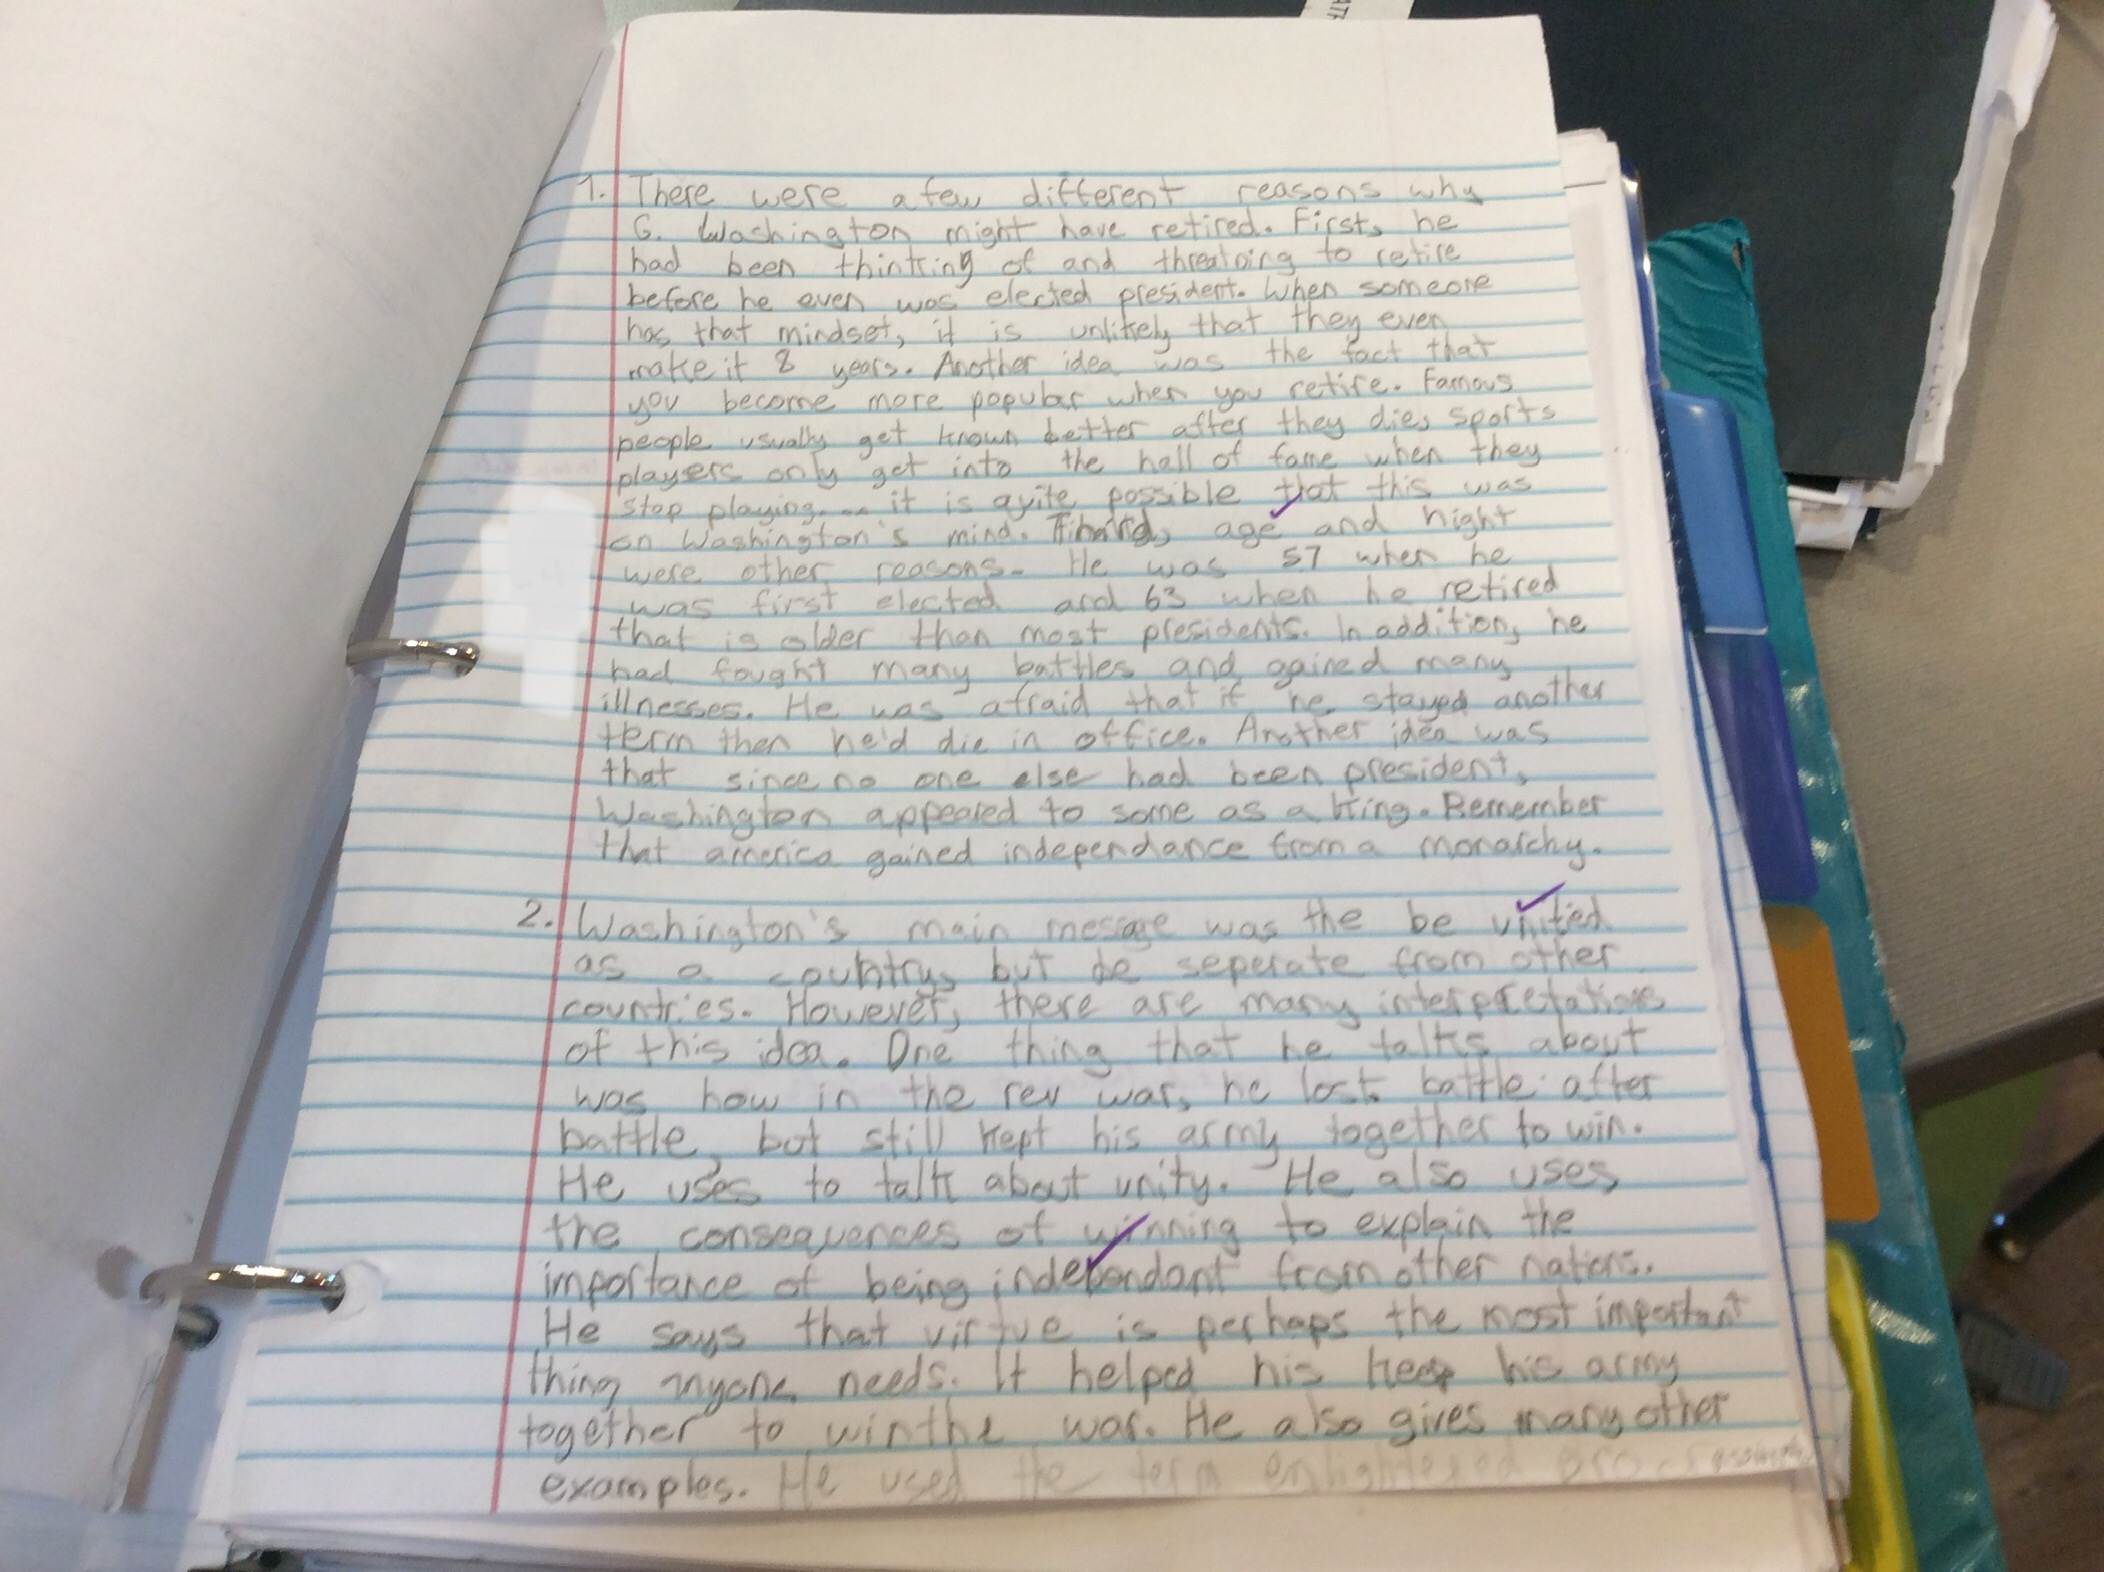 1. There were a few different reasons why
G. Washington might have retired. First, he
had been thinking of and threatoing to retire
before he even was elected president. When someone
has that mindset, it is unlikely that they even
make it 8 years. Another idea was the fact that
you become more popular when you retire. Famous
people usually get known better after they die, sports
players only get into the hall of fame when they
stop playing.... it is quite possible that this was
on Washington's mind. age and hight
were other reasons. He was 57 when he
was first elected and 63 when he retired
that is older than most presidents. In addition, he
had fought many battles and gained many
illnesses. He was afraid that if he stayed another
term then he'd die in office. Another idea was
that since no one else had been president,
Washington appeared to some as a king. Remember
that america gained independance from a monarchy.
2. Washington's main message was the be unified
as a country, but be seperate from other
countries. However, there are many interpretations
of this idea. One thing that he talks about
was how in the rev war, he lost battle after
battle, but still kept his army together to win.
He uses to talk about unity. He also uses
the consequences of winning to explain the
importance of being independant from other nations.
He says that virtue is perhaps the most important
thing anyone needs. It helped his keep his army
together to win the war. He also gives many other
examples. He used the term enlightened